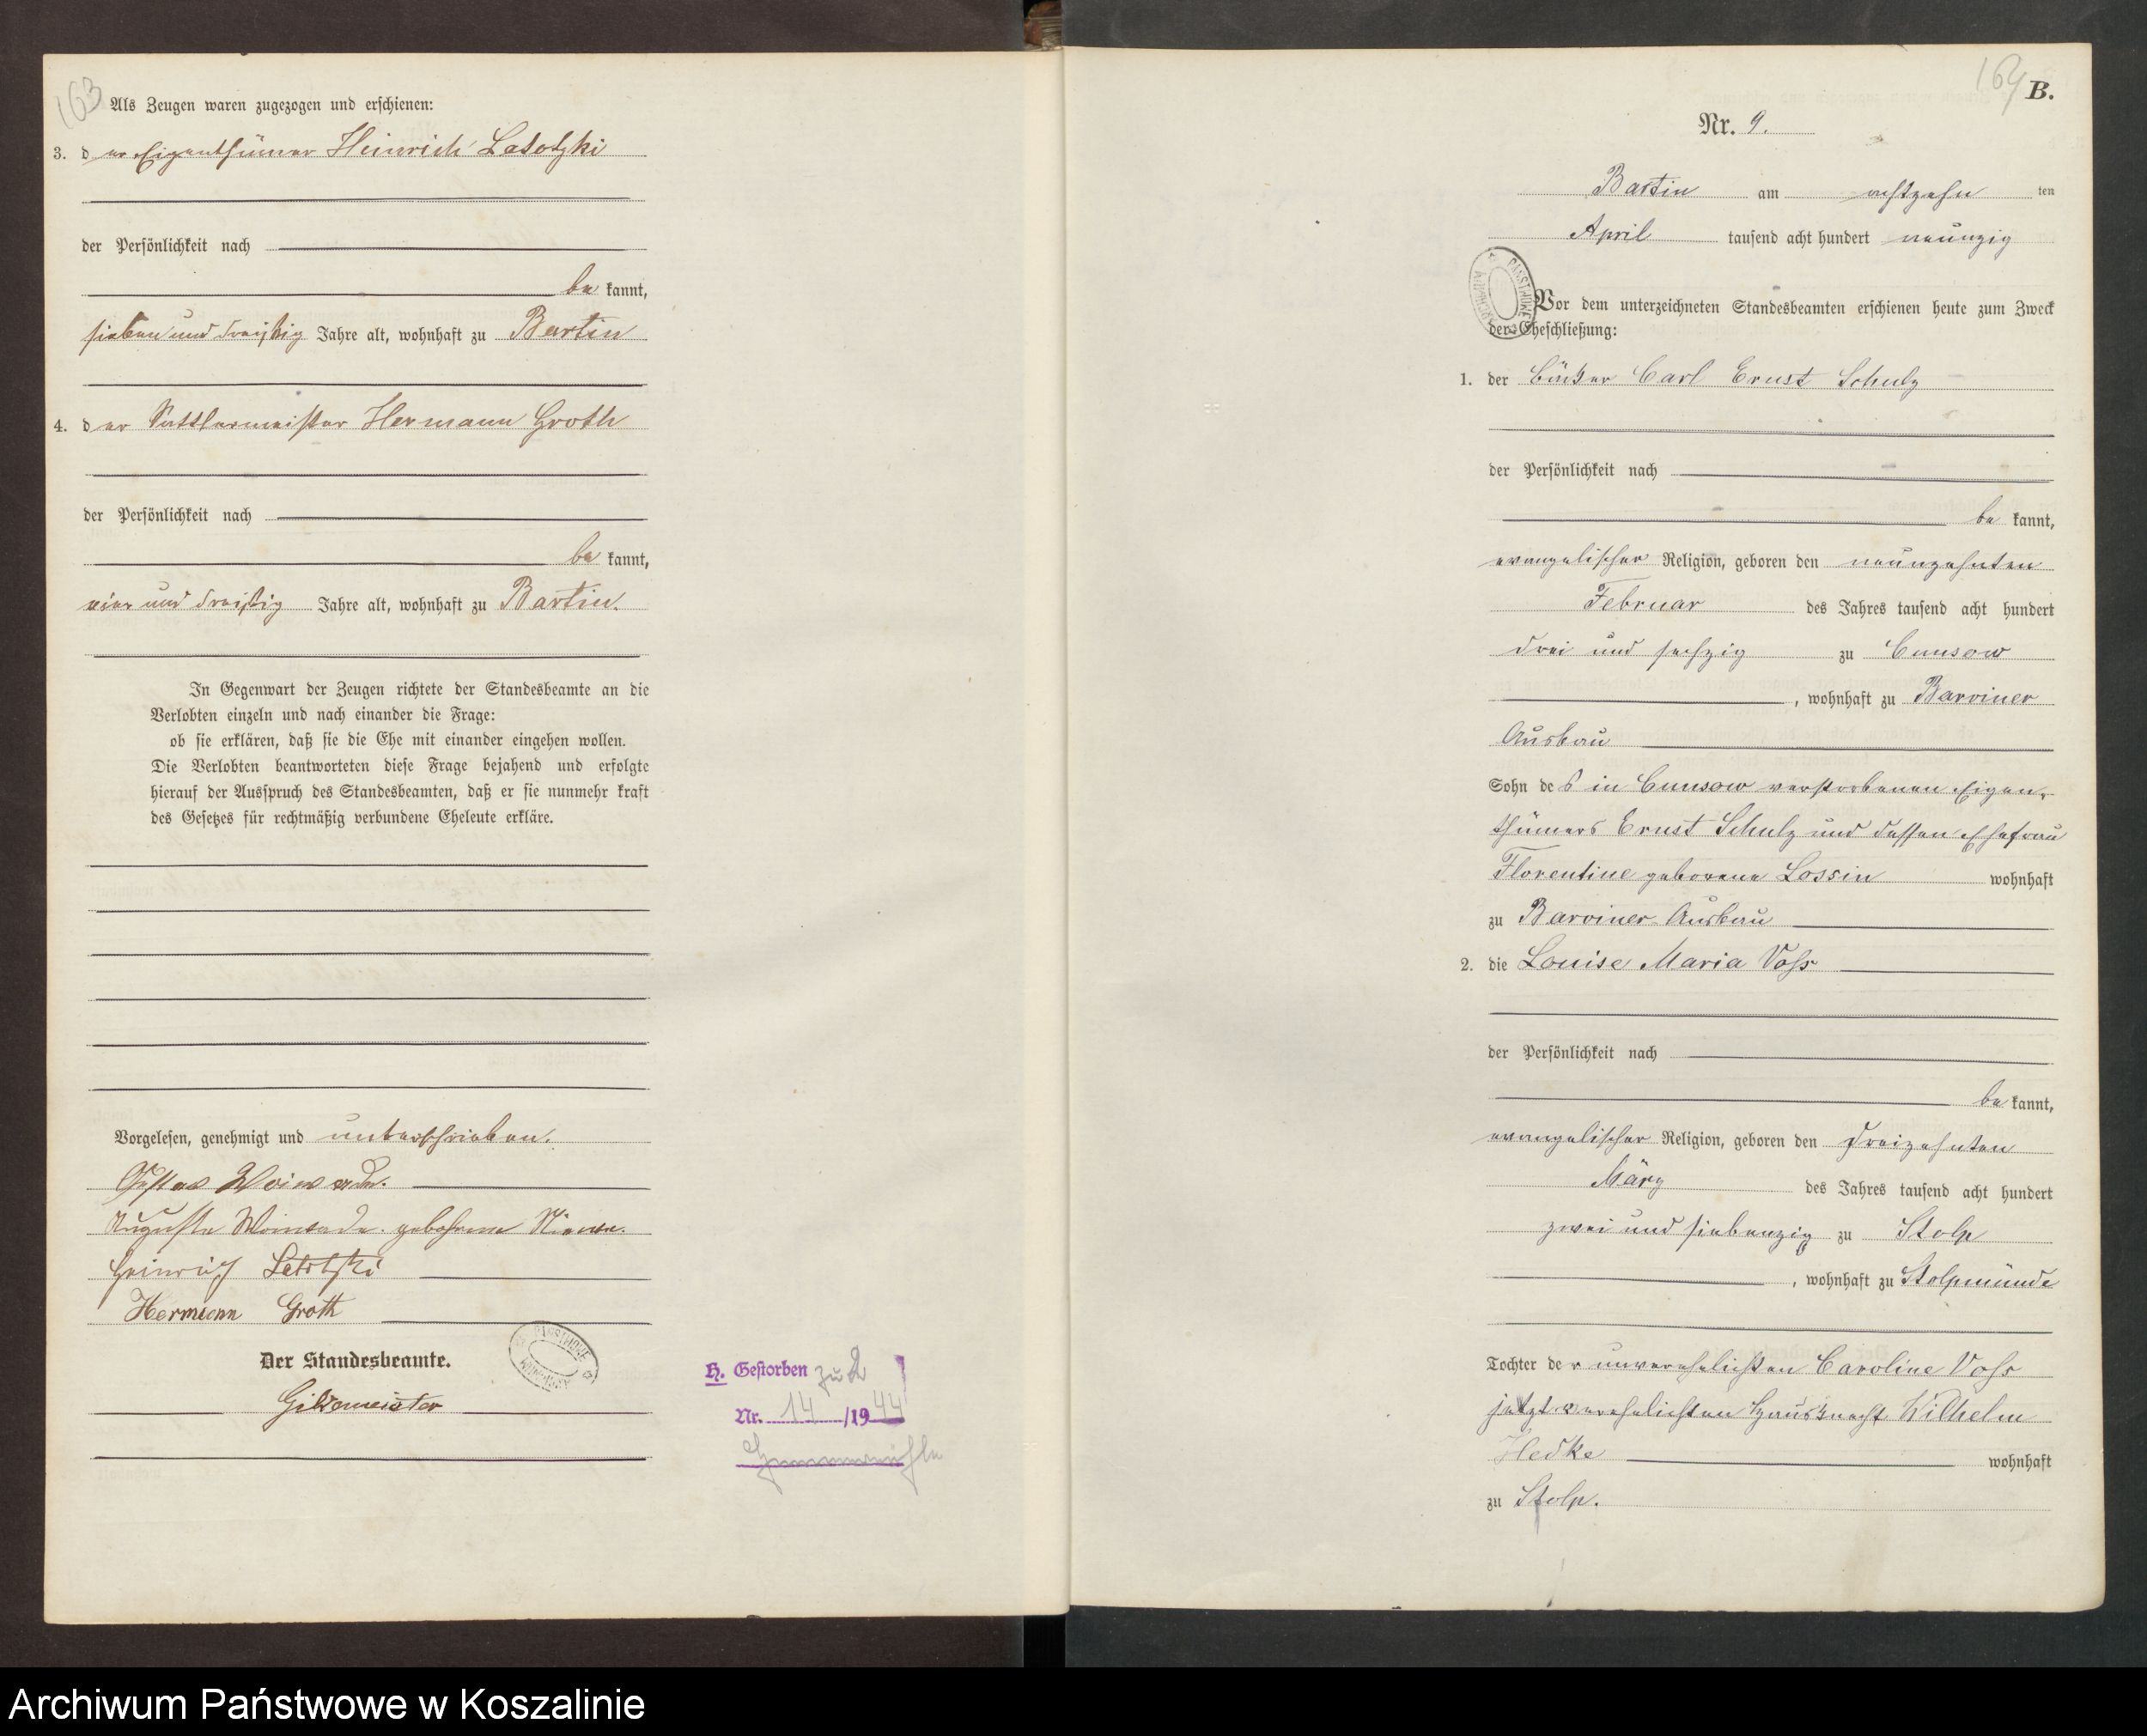 163
Als Zeugen waren zugezogen und erschienen:
3. der Eigenthümer Heinrich Latotzki
der Persönlichkeit nach
be kannt,
sieben und dreißig Jahre alt, wohnhaft zu Bartin
4. der Sattlermeister Hermann Groth
der Persönlichkeit nach
be kannt,
vier und dreißig Jahre alt, wohnhaft zu Bartin.
In Gegenwart der Zeugen richtete der Standesbeamte an die
Verlobten einzeln und nach einander die Frage:
ob sie erklären, daß sie die Ehe mit einander eingehen wollen.
Die Verlobten beantworteten diese Frage bejahend und erfolgte
hierauf der Ausspruch des Standesbeamten, daß er sie nunmehr kraft
des Gesetzes für rechtmäßig verbundene Eheleute erkläre.
Vorgelesen, genehmigt und unterschrieben.
Gustav
Auguste geborene
Heinrich Latotzki
Hermann Groth
Der Standesbeamte.
Gildemeister
H. Gestorben zu 2
Nr. 14 /1944
164
B.
Nr. 9.
Bartin am achtzehn ten
April tausend acht hundert neunzig
Vor dem unterzeichneten Standesbeamten erschienen heute zum Zweck
der Eheschließung:
1. der Bäcker Carl Ernst Schulz
der Persönlichkeit nach
be kannt,
evangelischer Religion, geboren den neunzehnten
Februar des Jahres tausend acht hundert
drei und sechzig zu Cunsow
, wohnhaft zu Barviner
Ausbau
Sohn des in Cunsow verstorbenen Eigen-
thümers Ernst Schulz und dessen Ehefrau
Florentine geborene Lossin wohnhaft
zu Barviner Ausbau
2. die Louise Maria Voss
der Persönlichkeit nach
be kannt,
evangelischer Religion, geboren den dreizehnten
März des Jahres tausend acht hundert
zwei und siebenzig zu Stolp
, wohnhaft zu Stolpmünde
Tochter der unverehelichten Caroline Voss
jetzt verehelichten Hausknecht Wilhelm
Hedke wohnhaft
zu Stolp.
Archiwum Państwowe w Koszalinie